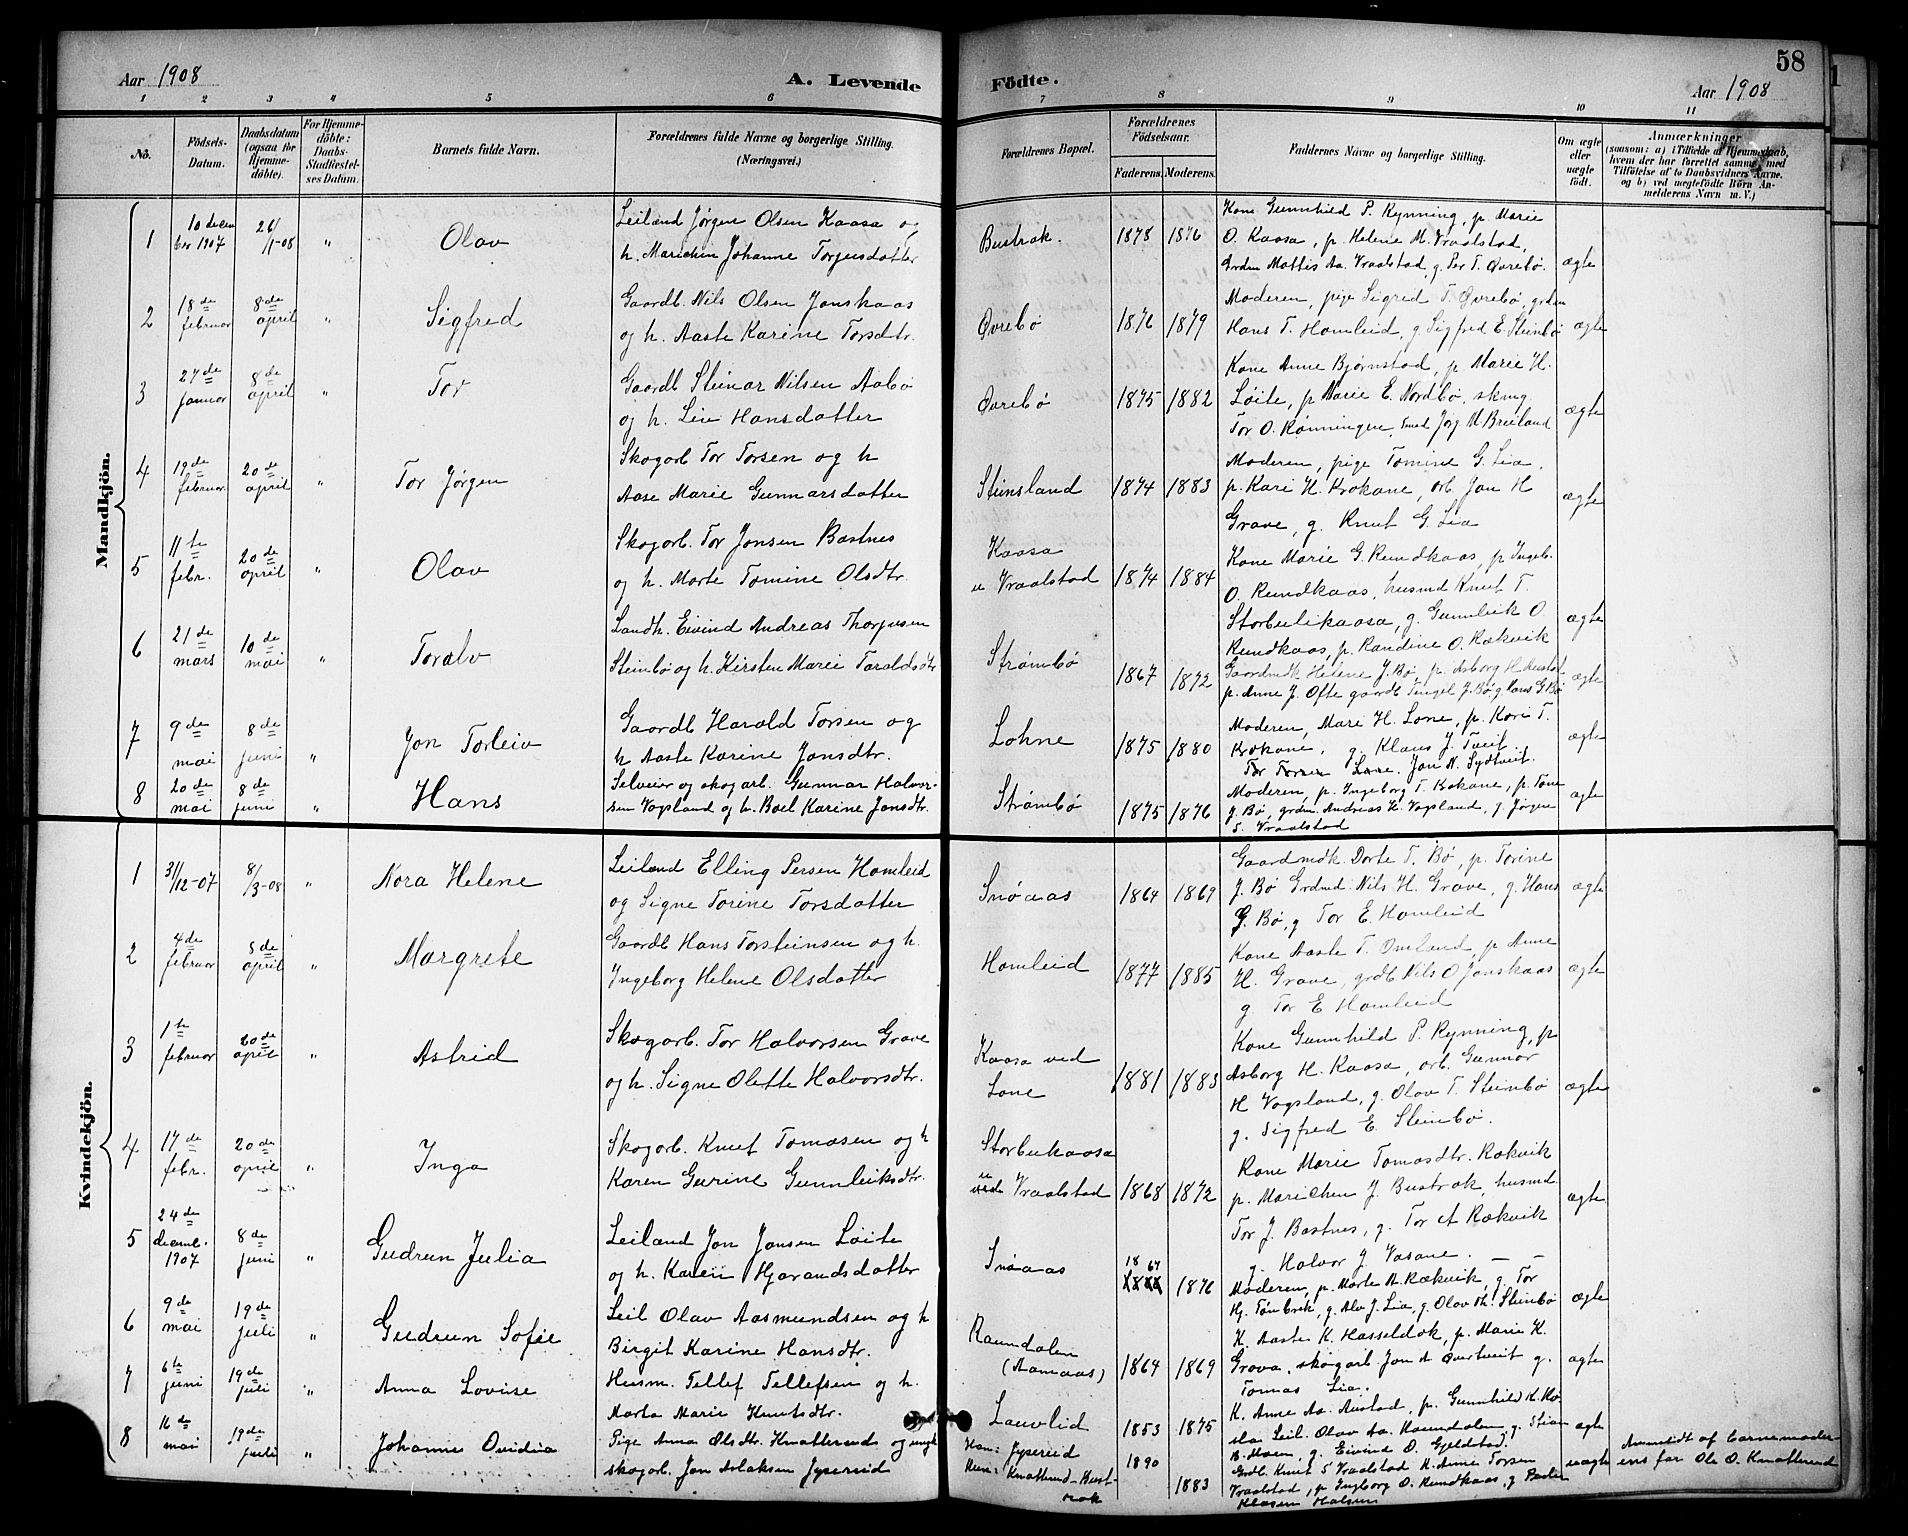 58
Aar 1908
A. Levende
Födte.
Aar 1908
1 2 3 4 5 6 7 8 9 10 11
No.
Födsels-Datum.
Daabsdatum (ogsaa for Hjemme-döbte).
For Hjemme-döbte: Daabs-Stadfæstelses Datum.
Barnets fulde Navn.
Forældrenes fulde Navne og borgerlige Stilling.
(Næringsvei.)
Forældrenes Bopæl.
Forældrenes Födselsaar.
Faderens. Moderens.
Faddernes Navne og borgerlige Stilling.
Om ægte eller uægte födt.
Anmærkninger
(saasom: a) i Tilfælde af Hjemmedaab, hvem der har forrettet samme, med Tilföielse af to Daabsvidners Navne. og b) ved uægtefödte Börn Anmelderens Navn m. V.)
Mandkjön.
1 10 decem
ber 1907 26/1-08 " Olav
Leilænd Jörgen Olsen Kaasa og
h. Marichen Johanne Torjusdatter
Bustrak. 1878 1876
Kone Gunnhild P. Rynning, p. Marie
O. Kaasa, p. Helene M. Vraalstad,
Grdm Mattis Aa. Vraalstad, g. Per T. Øvrebö. ægte
2 18de februar 8de april " Sigfred
Gaardb. Nils Olsen Jonskaas
og h. Aaste Karine Torsdtr.
Øvrebö 1876 1879
Moderen, pige Sigrid T. Øvrebö, grdm
Hans T. Homleid, g Sigfred E. Steinbö ægte
3 27de Januar 8de april " Tor
Gaardb Steinar Nilsen Aabö
og h. Liv Hansdatter
Øvrebö 1875 1882
Kone Anne Bjørnstad, p Marie H.
Löite, p Marie E. Nordbö,
Tor O. Rønningen, ægte
4 19de februar 20de april " Tor Jørgen
Skogarb Tor Torsen og h
Aase Marie Gunnarsdatter
Steinsland 1874 1883
Moderen, pige Tomine G. Lia.
p. Kari H. Krokane, arb. Jon H
Grave, g. Knut G. Lia ægte
5 11te febr. 20de april " Olav
Skogarb. Tor Jonsen Bastnes
og h. Marte Tomine Olsdtr.
Kaasa
u Vraalstad 1874 1884
Kone Marie G. Rundkaas, p Ingeb.
O. Rundkaas, husmd Knut T.
Storbulikaasa, g. Gunnleik O
Rundkaas, p. Randine O. Rækvik ægte
6 21de mars 10de mai " Toralv
Landh. Eivind Andreas Thorjusen
Steinbö og h. Kirsten Marie Taraldsdtr
Strömbö 1867 1872
Gaardmdk Helene J. Bö, p. Asborg H.
p. Anne J. Ofte gaardb Tengel J. Bö, g Hans G Bö ægte
7 9de mai 8de juni " Jon Torleiv
Gaardb Harald Torsen og
h Aaste Karine Jonsdtr.
Lohne 1875 1880
Moderen, Mari H. Lone, p. Kari T.
Krokane, g. Klaus J. Tveit.
Tor Torsen Lone. Jon N. Sydtveit. ægte
8 20de mai 8de juni " Hans
Selveier og skogarb. Gunnar Halvor-
sen Vogsland og h. Boel Karine Jonsdtr.
Strömbö 1875 1876
Moderen, p. Ingeborg T. Krokane, p. Tone
J. Bö, grdm. Andreas K. Vogsland, g. Jörgen
S. Vraalstad ægte
Kvindekjön.
1 31/12-07 8/3-08 " Nora Helene
Leilænd Elling Persen Homleid
og Signe Torine Torsdatter
Snöaas 1864 1869
Gaardmdk. Dorte T. Bö, p. Torine
J. Bö Grdmd Nils H. Grave, g. Hans
G. Bö, g Tor E. Homleid ægte
2 4de februar 8de april " Margrete
Gaardb Hans Torsteinsen og h.
Ingeborg Helene Olsdatter
Homleid 1877 1885
Kone Aaste T. Omland, p Anne
H. Grave, grdb. Nils O Jonskaas
g Tor E Homleid ægte
3 1te februar 20de april " Astrid
Skogarb. Tor Halvorsen Grave
og h. Signe Olette Halvorsdtr.
Kaasa ved
Lone 1881 1883
Kone Gunnhild P. Rynning, p
Asborg H. Kaasa, arb. Gunnar
H Vogsland, g. Olav T. Steinbö
g. Sigfred E Steinbö. ægte
4 17de febr. 20de april " Inga
Skogarb. Knut Tomasen og h
Karen Gurine Gunnleiksdtr.
Storbukaasa
u Vraalstad 1868 1872
Kone Marie Tomasdtr. Rækvik
p. Marichen J. Bustrak, husmd
Tor J. Bastnes, g. Tor A Rækvik
g. Halvor J. Vasane. — — ægte
5 24de decemb. 1907 8de juni " Gudrun Julia
Leilænd Jon Jonsen Löite
og h. Karen Hjarandsdatter
Snöaas 1867 1876
Moderen, p. Marte A. Rækvik, g. Tor
Hj. , g. Alv J. Lia, g. Olav Th. Steinbö ægte
6 9de mai 19de juli " Gudrun Sofie
Leil Olav Aasmundsen og h
Birgit Karine Hansdtr.
Raundalen
(Aamaas) 1864 1869
K. Aaste K. Hasseldok, p. Marie K.
Grova, skogarb Jon A Øvertveit g.
Tomas Lia. ægte
7 6te juni 19de juli " Anna Lovise
Husm. Tellef Tellefsen og h.
Marta Marie Knutsdtr.
Lauvlid 1853 1875
K. Anne Aa. Austad, p. Gunnhild K.
Leil. Olav Aa. Raundalen, g. Stian
B. Moen, g. Eivind O. Gjeldstad. ægte
8 16de mai 19de juli " Johanne Ovidia
Pige Anna Olsdtr. Knatterud og ungk
skogarb. Jon Aslaksen Jysereid
Han: Jysereid 1890
Hun: Knatterud-Bust-
rak 1883
Grdb. Knut S Vraalstad K. Anne Torsen
Vraalstad, p Ingborg O. Rundkaas, g Peder
Klasen Halsen uægte
Anmeldt af barnemoder-
ens far Ole O. Knatterud